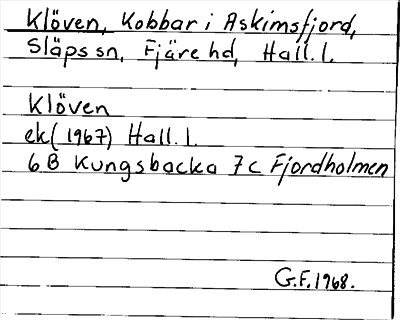 Klöven, Kobbar i Askimsfjord,
Släps sn, Fjäre hd, Hall. l.
Klöven
ek (1967) Hall. l.
6 B Kungsbacka 7 c Fjordholmen
G.F. 1968.